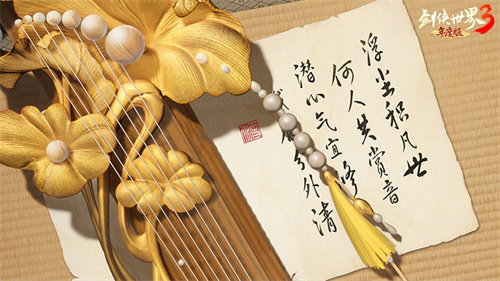 剑侠世界3
年度版
浮尘积凡世
何人共赏音
潜心气宜
兮外清